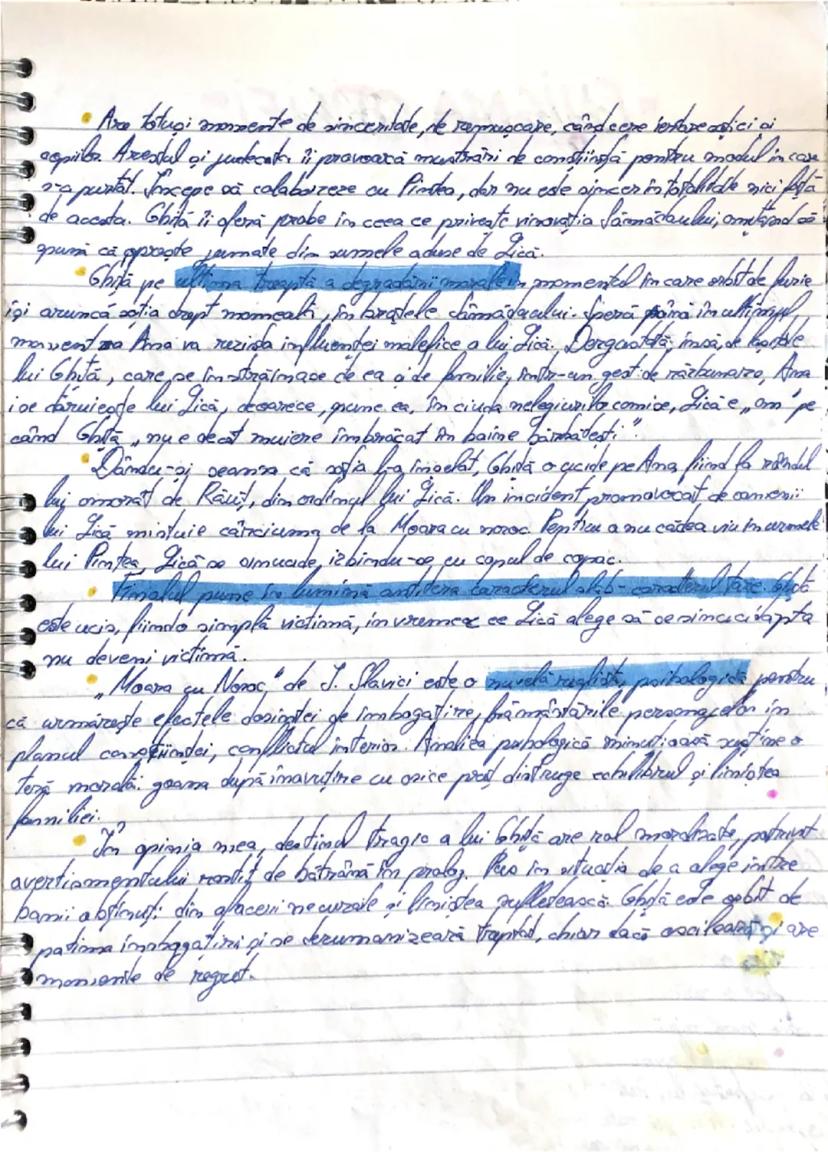 Are totuși momente de sinceritate, de remușcare, când cere iertare soției și
copiilor. Arestul și judecata îi provoacă mustrări de conștiință pentru modul în care
s-a purtat. Începe să colaboreze cu Pintea, dar nu este sincer în totalitate nici față
de acesta. Ghiță îi oferă probe în ceea ce privește vinovăția Sămădăului, omițând să
spună că oprește jumate din sumele aduse de Lică.
Ghiță pe ultima treaptă a degradării morale în momentul în care orbit de furie
își aruncă soția drept momeală, în brațele Sămădăului. Speră până în ultimul
moment ca Ana va rezista influenței malefice a lui Lică. Dezgustată, însă, de lașitatea
lui Ghiță, care se înstrăinase de ea și de familie, într-un gest de răzbunare, Ana
i se dăruiește lui Lică, deoarece, spune ea, în ciuda nelegiuirilor comise, Lică e „om" pe
când Ghiță „nu e decât muiere îmbrăcat în haine bărbătești".
Dându-și seama că soția l-a înșelat, Ghiță o ucide pe Ana, fiind la rândul
lui omorât de Răuț, din ordinul lui Lică. Un incident promovocat de oamenii
lui Lică mistuie cârciuma de la Moara cu noroc. Pentru a nu cădea viu în urmele
lui Pintea, Lică se sinucide, izbindu-se cu capul de copac.
Finalul pune în lumină antiteza caracterul slab - caracterul tare. Ghiță
este ucis, fiind o simplă victimă, în vreme ce Lică alege să se sinucidă pta
nu deveni victimă.
„Moara cu Noroc" de I. Slavici este o nuvelă realistă, psihologică pentru
că urmărește efectele dorinței de îmbogățire, frământările personajelor în
planul conștiinței, conflictul interior. Analiza psihologică minuțioasă susține o
teză morală: goana după înavuțire cu orice preț distruge echilibrul și liniștea
familiei.
În opinia mea, destinul tragic a lui Ghiță are rol moralizator, potrivit
avertismentului rostit de bătrână în prolog. Pus în situația de a alege între
banii obținuți din afaceri necurate și liniștea sufletească. Ghiță este robit de
patima îmbogățirii și se dezumanizează treptat, chiar dacă oscilează și are
momente de regret.